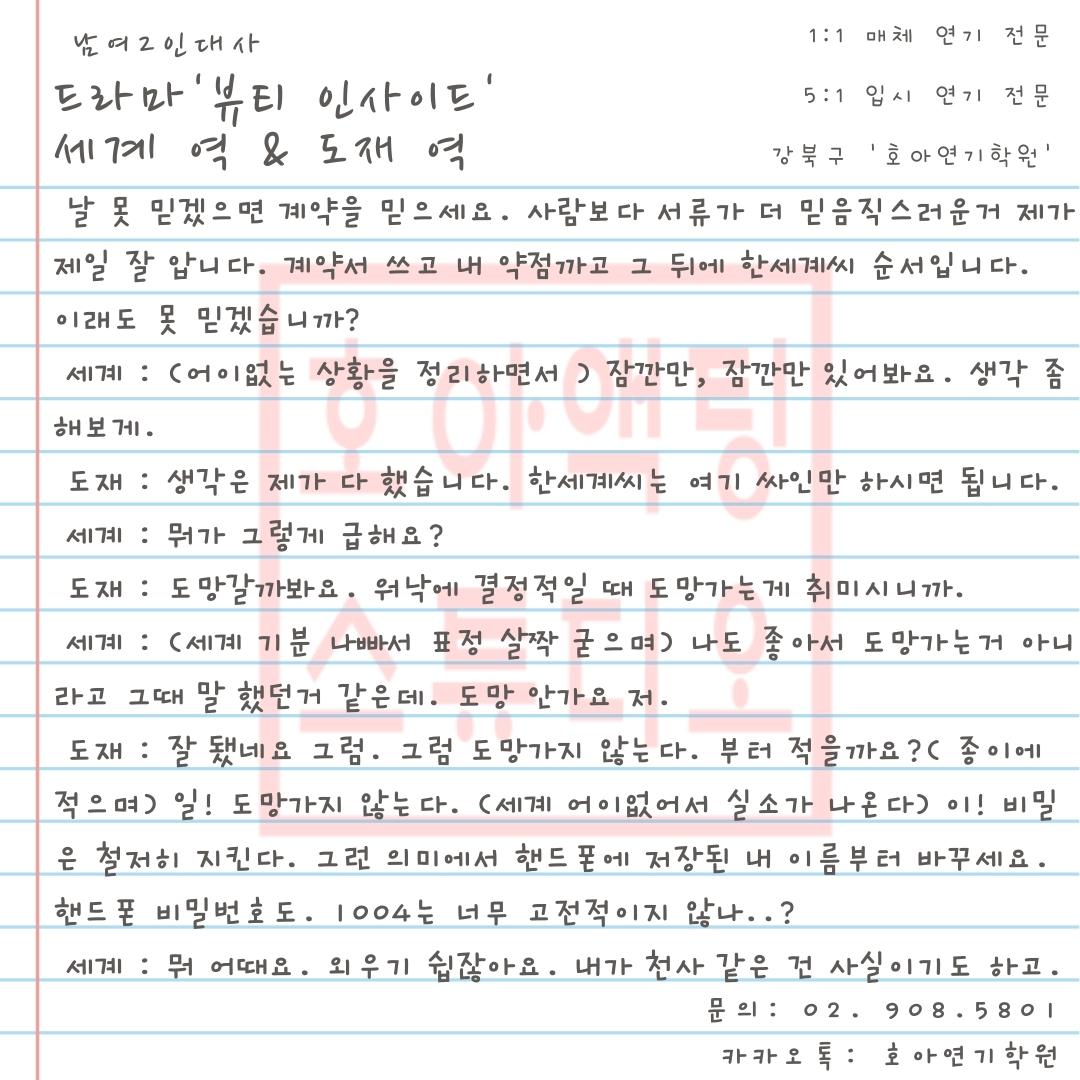 남여2인대사
드라마'뷰티 인사이드'
세계 역 & 도재 역
1:1 매체 연기 전문
5:1 입시 연기 전문
강북구 '호아연기학원'
날 못 믿겠으면 계약을 믿으세요. 사람보다 서류가 더 믿음직스러운거 제가
제일 잘 압니다. 계약서 쓰고 내 약점까고 그 뒤에 한세계씨 순서입니다.
이래도 못 믿겠습니까?
세계 : (어이없는 상황을 정리하면서 ) 잠깐만, 잠깐만 있어봐요. 생각 좀
해보게.
도재 : 생각은 제가 다 했습니다. 한세계씨는 여기 싸인만 하시면 됩니다.
세계 : 뭐가 그렇게 급해요?
도재 : 도망갈까봐요. 워낙에 결정적일 때 도망가는게 취미시니까.
세계 : (세계 기분 나빠서 표정 살짝 굳으며) 나도 좋아서 도망가는거 아니
라고 그때 말 했던거 같은데. 도망 안가요 저.
도재 : 잘 됐네요 그럼. 그럼 도망가지 않는다. 부터 적을까요?( 종이에
적으며) 일! 도망가지 않는다. (세계 어이없어서 실소가 나온다) 이! 비밀
은 철저히 지킨다. 그런 의미에서 핸드폰에 저장된 내 이름부터 바꾸세요.
핸드폰 비밀번호도. 1004는 너무 고전적이지 않나..?
세계 : 뭐 어때요. 외우기 쉽잖아요. 내가 천사 같은 건 사실이기도 하고.
문의: 02. 908.5801
카카오톡: 호아연기학원
호아액팅
스튜디오